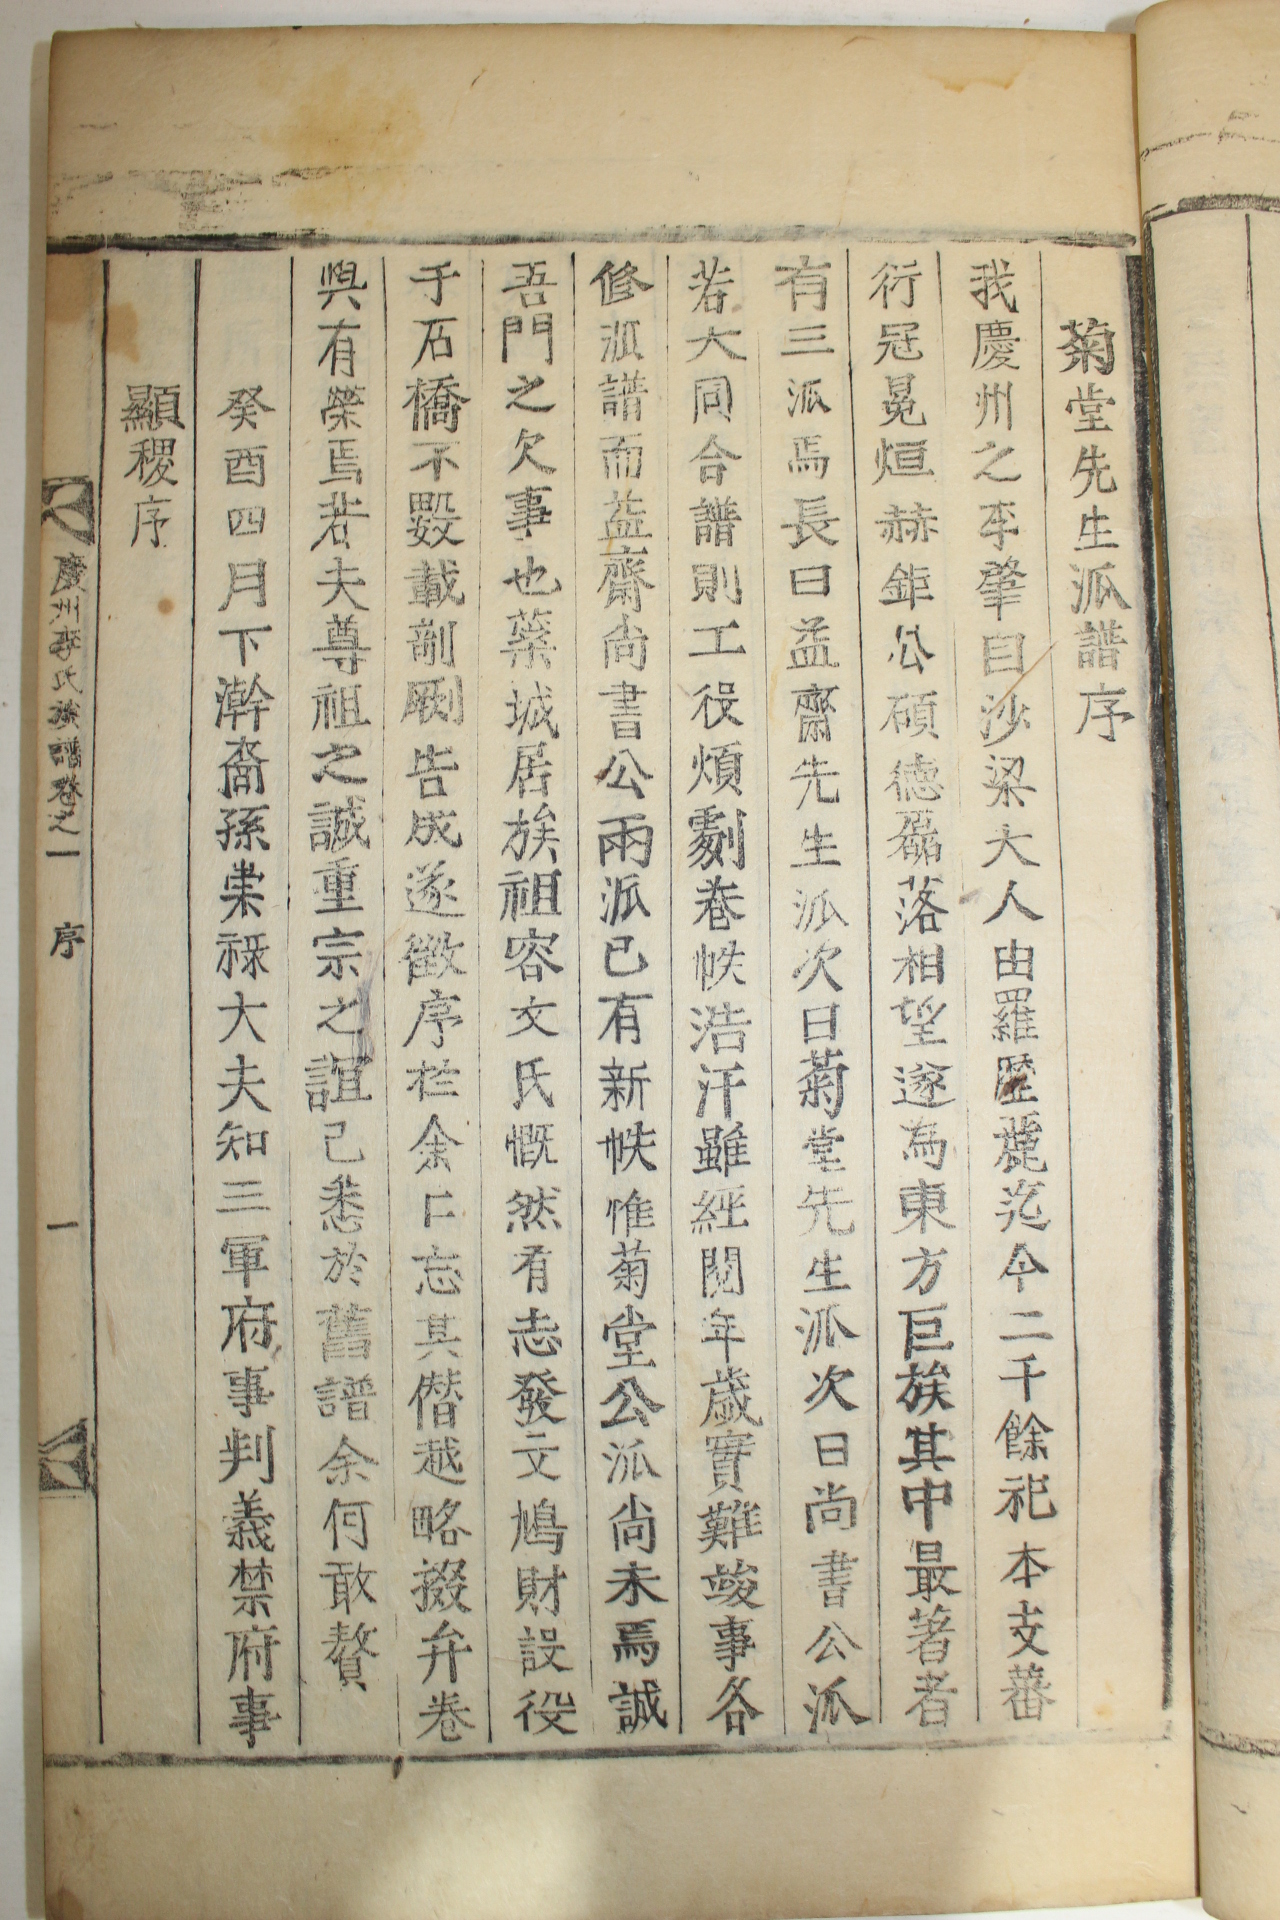 菊堂先生派譜序
我慶州之李肇自沙梁大人由羅歷麗迄今二千餘祀本支蕃
衍冠冕烜赫鉅公碩德磊落相望遂爲東方巨族其中最著者
有三派焉長曰益齋先生派次曰菊堂先生派次曰尙書公派
若大同合譜則工役煩劇卷帙浩汗雖經閱年歲實難竣事各
修派譜而益齋尙書公兩派已有新帙惟菊堂公派尙未焉誠
吾門之欠事也蘂城居族祖容文氏慨然有志發文鳩財設役
于石橋不數載剞劂告成遂徵序於余亡忘其僭越略掇弁卷
與有榮焉若夫尊祖之誠重宗之誼已悉於舊譜余何敢贅
癸酉四月下澣裔孫崇祿大夫知三軍府事判義禁府事
顯稷序
慶州李氏族譜卷之一 序 一